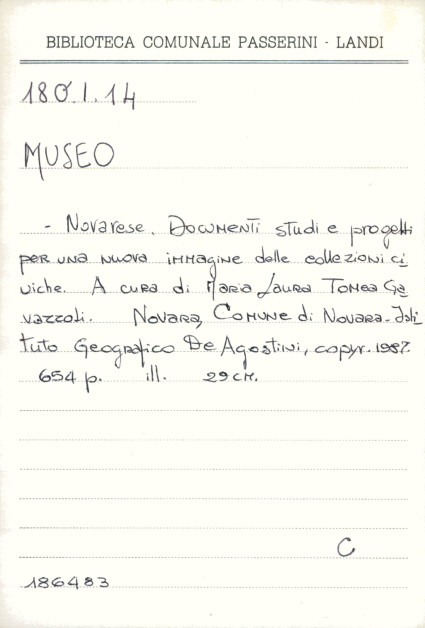 BIBLIOTECA COMUNALE PASSERINI - LANDI
180.I.14
MUSEO
- Novarese. Documenti studi e progetti
per una nuova immagine delle collezioni ci
viche. A cura di Maria Laura Tomea Ga
vazzoli. Novara, Comune di Novara - Isti
tuto Geografico De Agostini, copyr. 1987.
654 p. ill. 29 cm.
C
186483